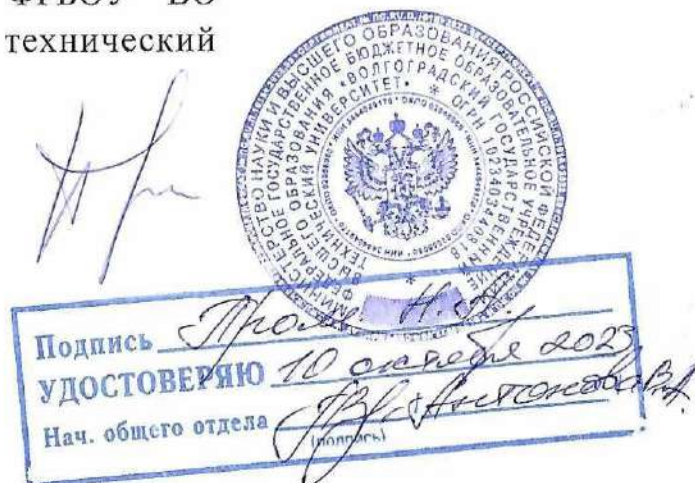 ФГБОУ ВО
технический
МИНИСТЕРСТВО НАУКИ И ВЫСШЕГО ОБРАЗОВАНИЯ РОССИЙСКОЙ ФЕДЕРАЦИИ
ФЕДЕРАЛЬНОЕ ГОСУДАРСТВЕННОЕ БЮДЖЕТНОЕ ОБРАЗОВАТЕЛЬНОЕ УЧРЕЖДЕНИЕ
ВЫСШЕГО ОБРАЗОВАНИЯ «ВОЛГОГРАДСКИЙ ГОСУДАРСТВЕННЫЙ
ТЕХНИЧЕСКИЙ УНИВЕРСИТЕТ» * ОГРН 1023403440818
Подпись Н.
УДОСТОВЕРЯЮ 10 октября 2023
Нач. общего отдела Антонова В.А.
(подпись)